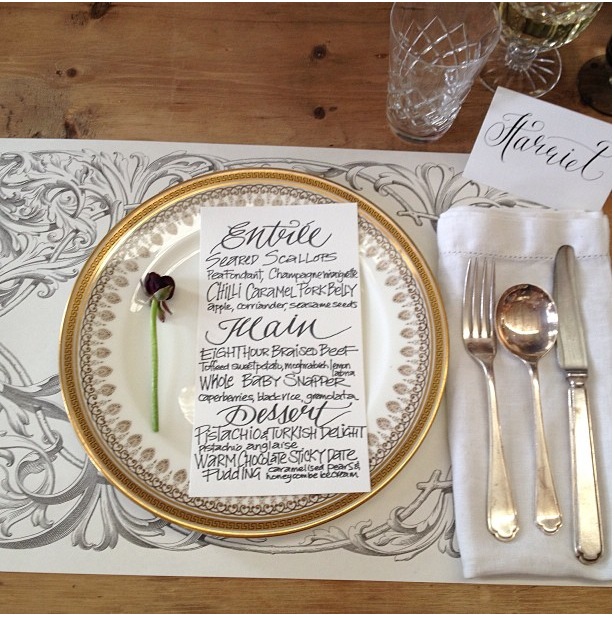 Harriet
Entrée
SEARED SCALLOPS
Pea Fondant, Champagne vinaigrette
CHILLI CARAMEL PORK BELLY
apple, corriander, seasame seeds
Main
EIGHT HOUR BRAISED BEEF
Toffeed sweet potato, moghrabieh, lemon
labna
WHOLE BABY SNAPPER
caperberries, black rice, gramolatta
Dessert
PISTACHIO & TURKISH DELIGHT
pistachio anglaise
WARM CHOCOLATE STICKY DATE
PUDDING caramelised pears &
honeycombe ice cream